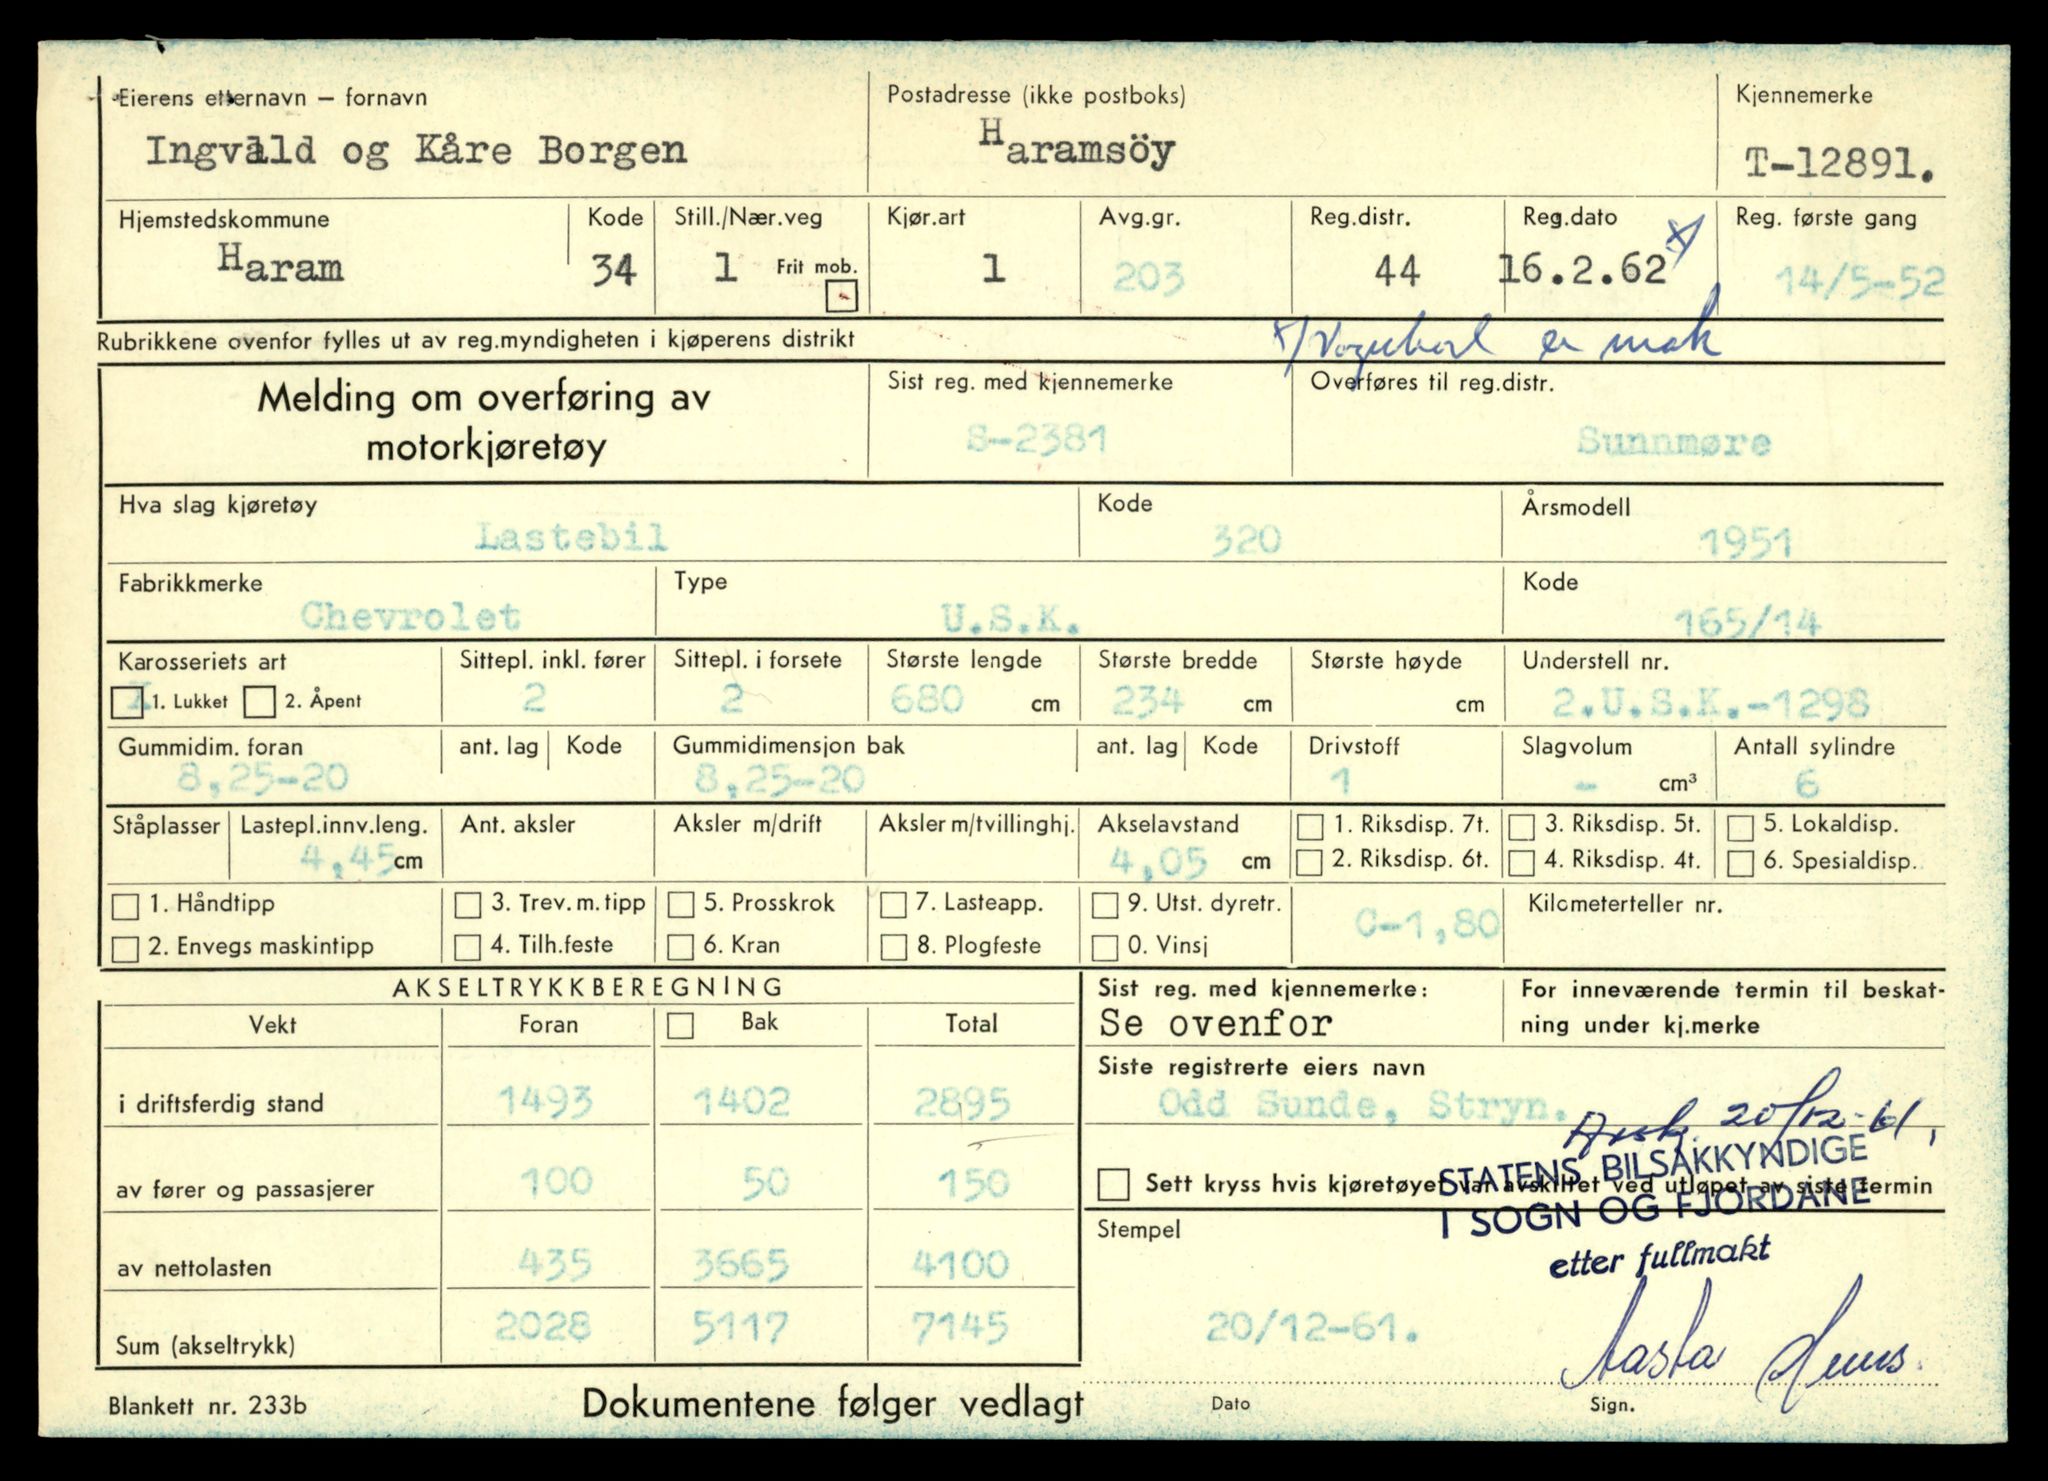 Eierens etternavn – fornavn
Ingvald og Kåre Borgen
Postadresse (ikke postboks)
Haramsöy
Kjennemerke
T-12891.
Hjemstedskommune
Haram
Kode
34
Still./Nær.veg
1
Frit mob.
Kjør.art
1
Avg.gr.
203
Reg.distr.
44
Reg.dato
16.2.62 x/
Reg. første gang
14/5-52
Rubrikkene ovenfor fylles ut av reg.myndigheten i kjøperens distrikt
x/ Vognkort er mak
Melding om overføring av
motorkjøretøy
Sist reg. med kjennemerke
S-2381
Overføres til reg.distr.
Sunnmøre
Hva slag kjøretøy
Lastebil
Kode
320
Årsmodell
1951
Fabrikkmerke
Chevrolet
Type
U.S.K.
Kode
165/14
Karosseriets art
X 1. Lukket 2. Åpent
Sittepl. inkl. fører
2
Sittepl. i forsete
2
Største lengde
680 cm
Største bredde
234 cm
Største høyde
cm
Understell nr.
2.U.S.K.-1298
Gummidim. foran
8,25-20
ant. lag Kode
Gummidimensjon bak
8,25-20
ant. lag Kode
Drivstoff
1
Slagvolum
- cm³
Antall sylindre
6
Ståplasser
Lastepl.innv.leng.
4,45 cm
Ant. aksler
Aksler m/drift
Aksler m/tvillinghj.
Akselavstand
4,05 cm
1. Riksdisp. 7t.
2. Riksdisp. 6t.
3. Riksdisp. 5t.
4. Riksdisp. 4t.
5. Lokaldisp.
6. Spesialdisp.
1. Håndtipp
2. Envegs maskintipp
3. Trev. m. tipp
4. Tilh.feste
5. Prosskrok
6. Kran
7. Lasteapp.
8. Plogfeste
9. Utst. dyretr.
0. Vinsj
C-1,80
Kilometerteller nr.
AKSELTRYKKBEREGNING
Vekt Foran Bak Total
i driftsferdig stand 1493 1402 2895
av fører og passasjerer 100 50 150
av nettolasten 435 3665 4100
Sum (akseltrykk) 2028 5117 7145
Sist reg. med kjennemerke:
Se ovenfor
For inneværende termin til beskat-
ning under kj.merke
Siste registrerte eiers navn
Odd Sunde, Stryn.
Avsk. 20/12-61,
Sett kryss hvis kjøretøyet var avskiltet ved utløpet av siste termin
STATENS BILSAKKYNDIGE
I SOGN OG FJORDANE
etter fullmakt
Stempel
20/12-61.
Aasta
Dato
Sign.
Blankett nr. 233b
Dokumentene følger vedlagt